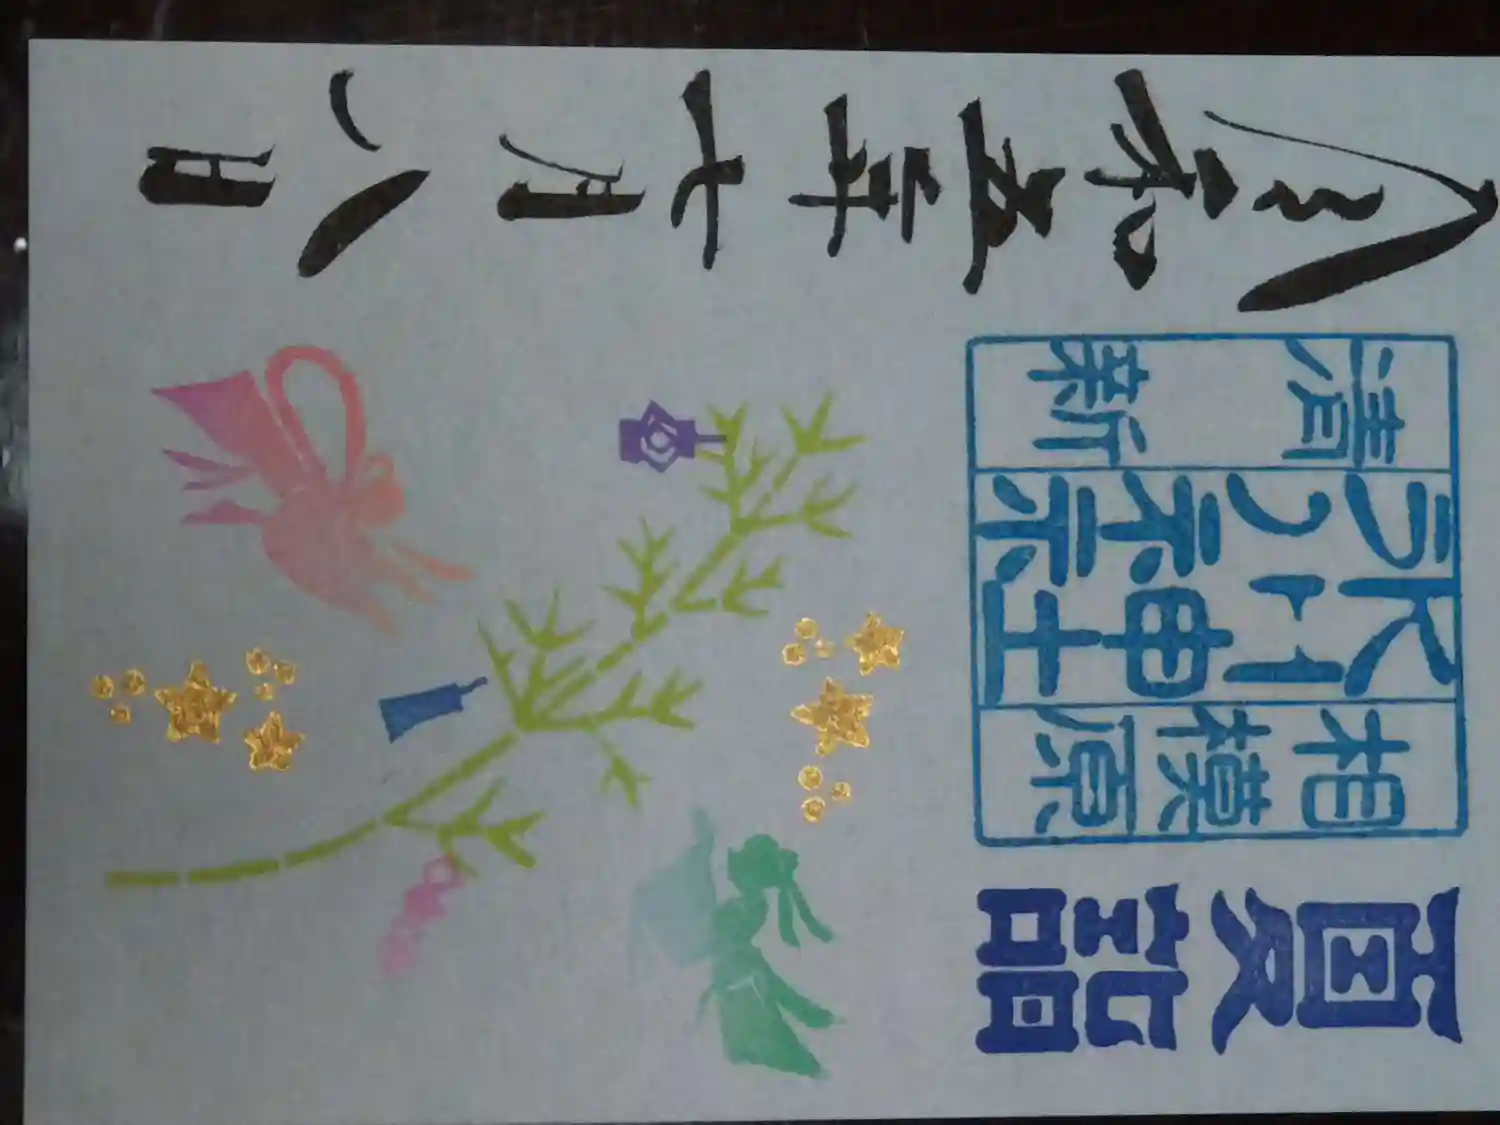 夏詣
相模原
氷川神社
清新
令和五年七月八日